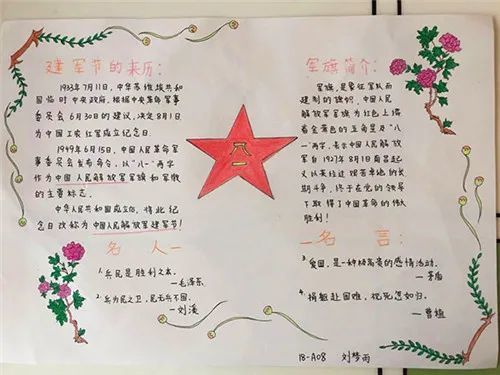 建军节的来历:
1933年7月11日，中华苏维埃共和
国临时中央政府，根据中央革命军事
委员会6月30日的建议，决定8月1日
为中国工农红军成立纪念日。
1949年6月15日，中国人民革命军
事委员会发布命令，以“八一”两字
作为中国人民解放军军旗和军徽
的主要标志。
中华人民共和国成立后，将此纪
念日改称为中国人民解放军建军节!
八一
军旗简介:
军旗，是象征军队而
建制的旗帜，中国人民
解放军军旗为红色上缀
着金黄色的五角星及“八
一”两字，表示中国人民解放
军自1927年8月1日南昌起
义以来经过
长期斗争，终于在党的领导
下取得了中国革命的伟大
胜利!
名人一
1. 兵民是胜利之本。
—毛泽东
2. 兵为民之卫，民无兵不固。
—刘溪
一名言:
3. 爱国，是一种极高贵的感情活动。
—茅盾
4. 捐躯赴国难，视死忽如归。
—曹植
18-A08 刘梦雨